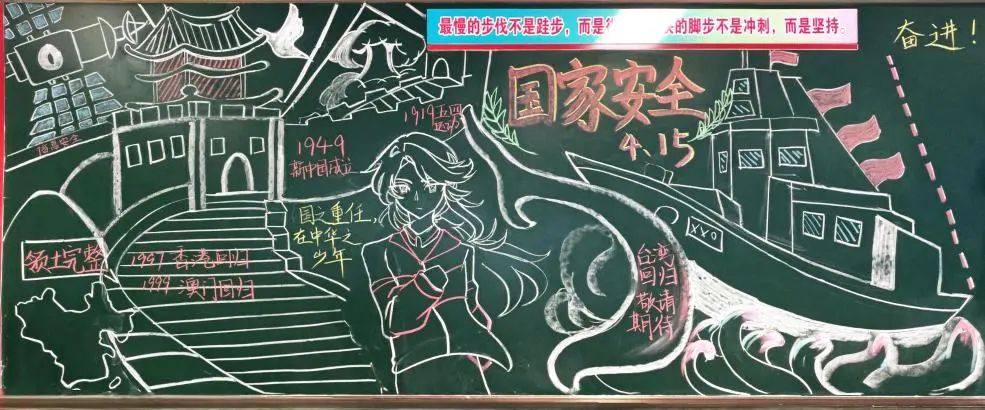 最慢的步伐不是跬步，而是徘
的脚步不是冲刺，而是坚持。
奋进！
国家安全
4.15
信息安全
1919五四
运动
1949
新中国成立
国之重任，
在中华之
少年
领土完整
1997香港回归
1999澳门回归
台湾
回归
敬请
期待
XXO